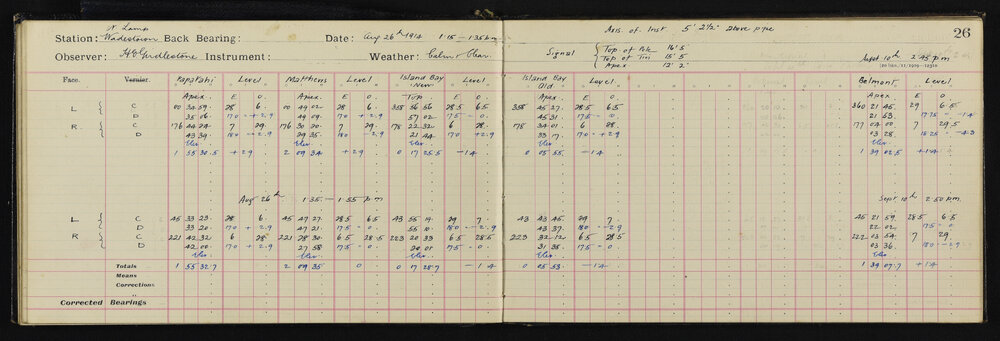 N Lamp
Station: Wadestown Back Bearing: Date: Aug 26th 1914 1·15 — 1·35 pm Axis of Inst 5' 2½" above pipe 26
Observer: H E Girdlestone Instrument: Weather: Calm & Clear Signal { Top of Pk 16' 5" Sept 10th 2.45 pm
Top of Tin 15' 5"
Apex 12' 2"
Face. Vernier. Papatahi Level Matthews Level Island Bay New Level Island Bay Old Level Belmont Level
Apex. E O. Apex. E O. Top. E O. Apex E O. Apex E O
L { C 00 34 59. 28 6. 00 49 02 28 6. 358 56 56 28.5 6.5 358 45 27. 28.5 6.5 360 21 45 29 6.5
D 35 06. 17.0 + 2.9 49 09. 17.0 + 2.9 57 02 17.5 — 0. 45 31. 17.5 — 0 21 53. 17.75 — 1.4
R { C 176 44 24 7 29. 176 30 20. 7 29. 178 22 32 6 28. 178 34 01 6 28 177 04 00 7 29.5
D 43 39. 18.0 — 2.9 29 35 18.0 — 2.9 21 44 17.0 + 2.9 33 17. 17.0 + 2.9 03 28. 18.25 — 4.3
Elev. Elev. Elev. Elev. Elev
1 55 30.5 + 2.9 2 09 34 + 2.9 0 17 25.5 — 1.4 0 05 55. — 1.4 1 39 02.5 + 1.4
Aug 26th 1.35 — 1.55 pm Sept 10th 2.50 pm.
L { C 45 33 23. 28 6. 45 47 27. 28.5 6.5 43 55 19. 29 7. 43 43 45. 29 7. 45 21 59 28.5 6.5
D 33 20. 17.0 + 2.9 47 21. 17.5 — 0. 55 10. 18.0 — 2.9 43 37. 18.0 — 2.9 22 02. 17.5 — 0
R { C 221 42 32 6 28 221 28 30. 6.5 28.5 223 20 33 6.5 28.5 223 32 12 6.5 28.5 222 03 54. 7 29
D 42 00. 17.0 + 2.9 27 58 17.5 — 0. 20 01 17.5 — 0. 31 35. 17.5 — 0. 03 36. 18.0 — 2.9
Elev Elev Elev. Elev Elev
Totals 1 55 32.7 2 09 35 0 0 17 28.7 — 1.4 0 05 53. — 1.4 1 39 07.7 + 1.4
Means
Corrections
Corrected Bearings